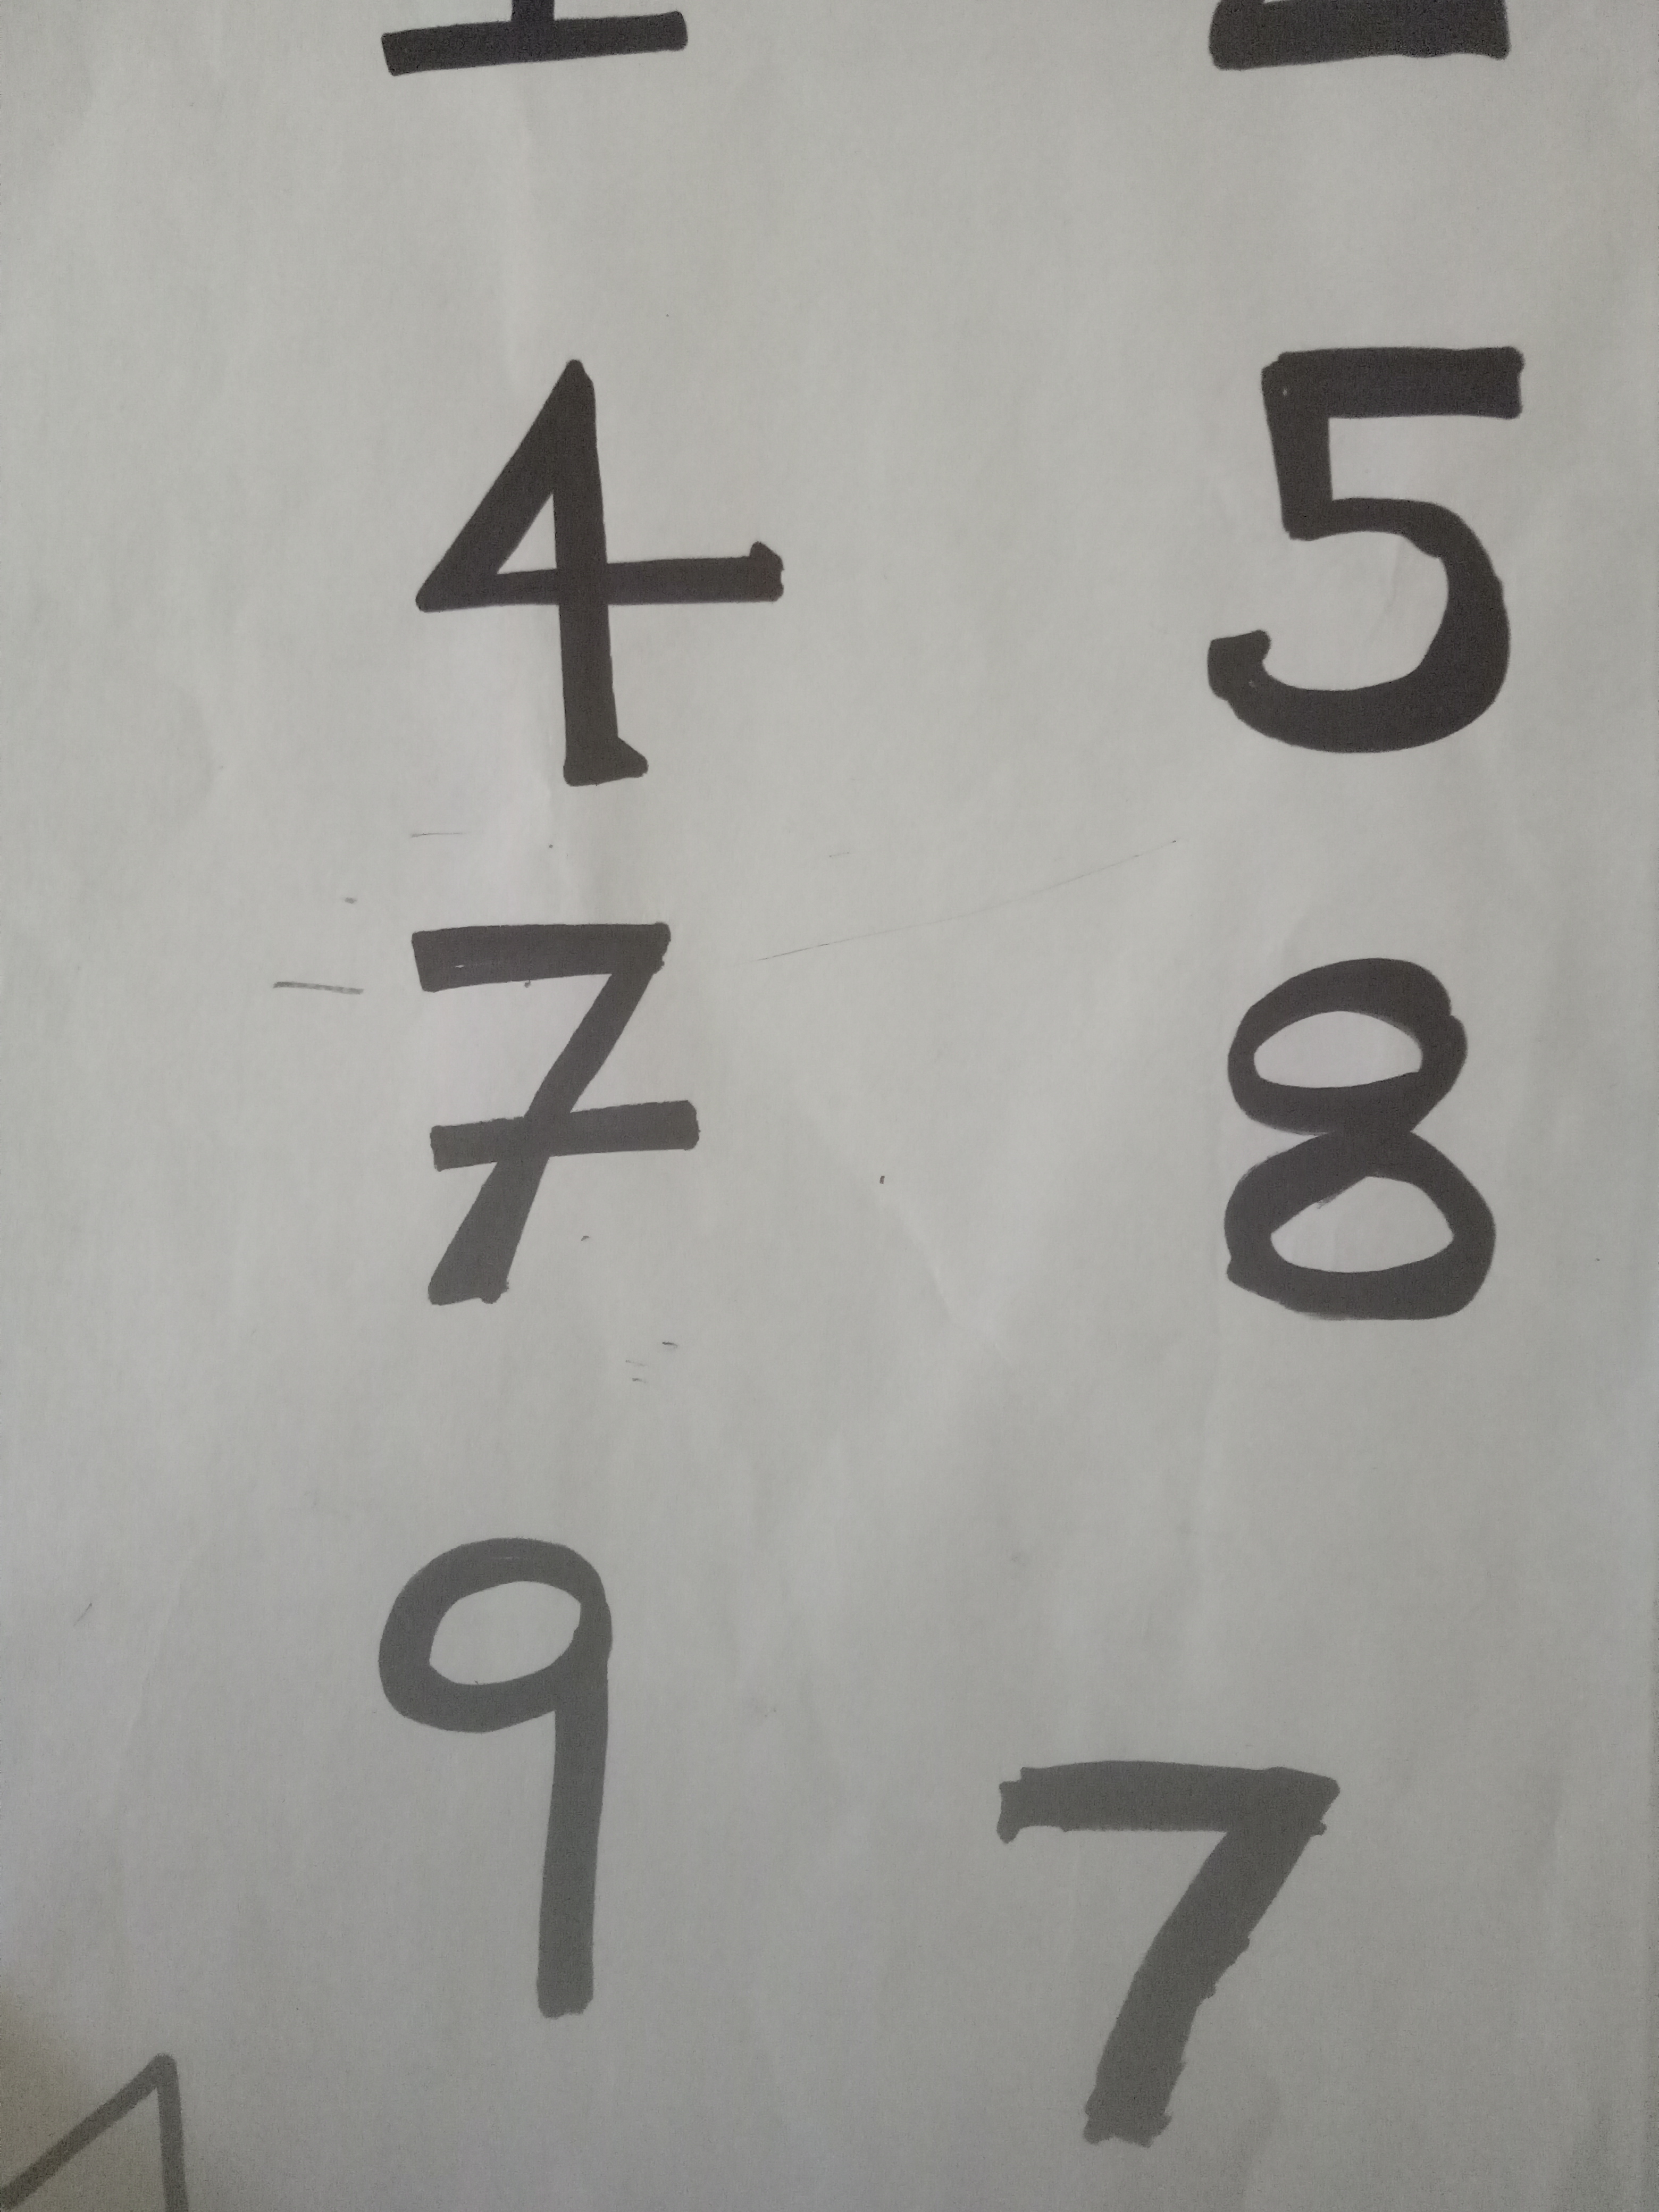 4 5
7 8
9 7